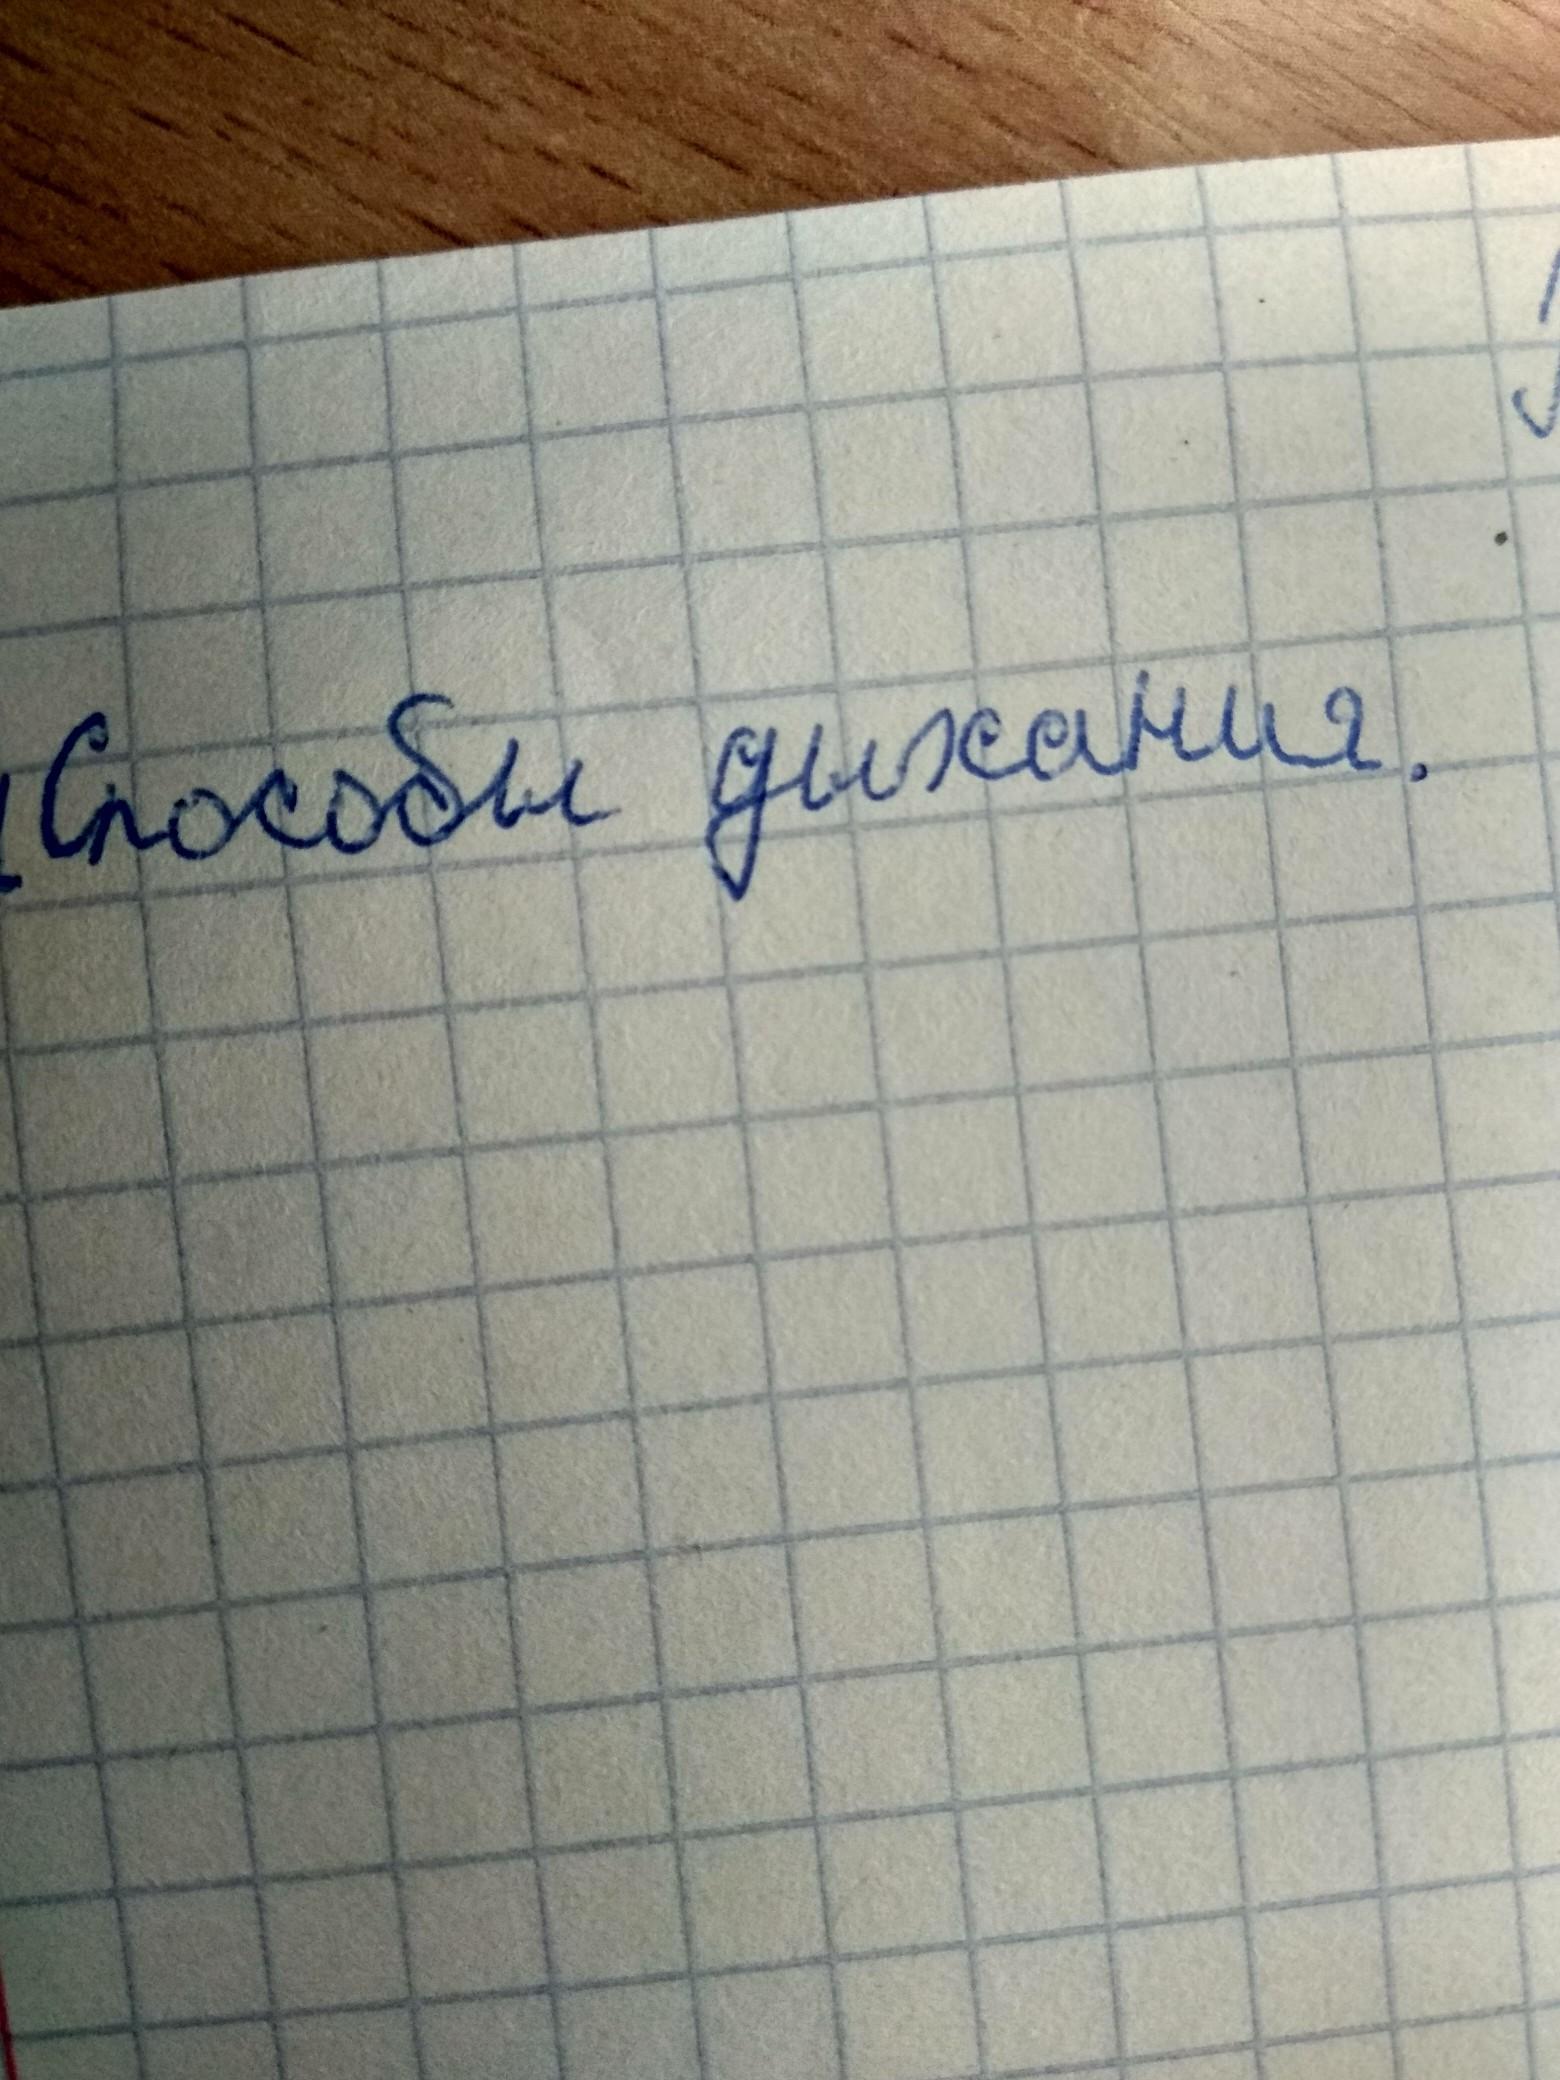 Способы дыхания.